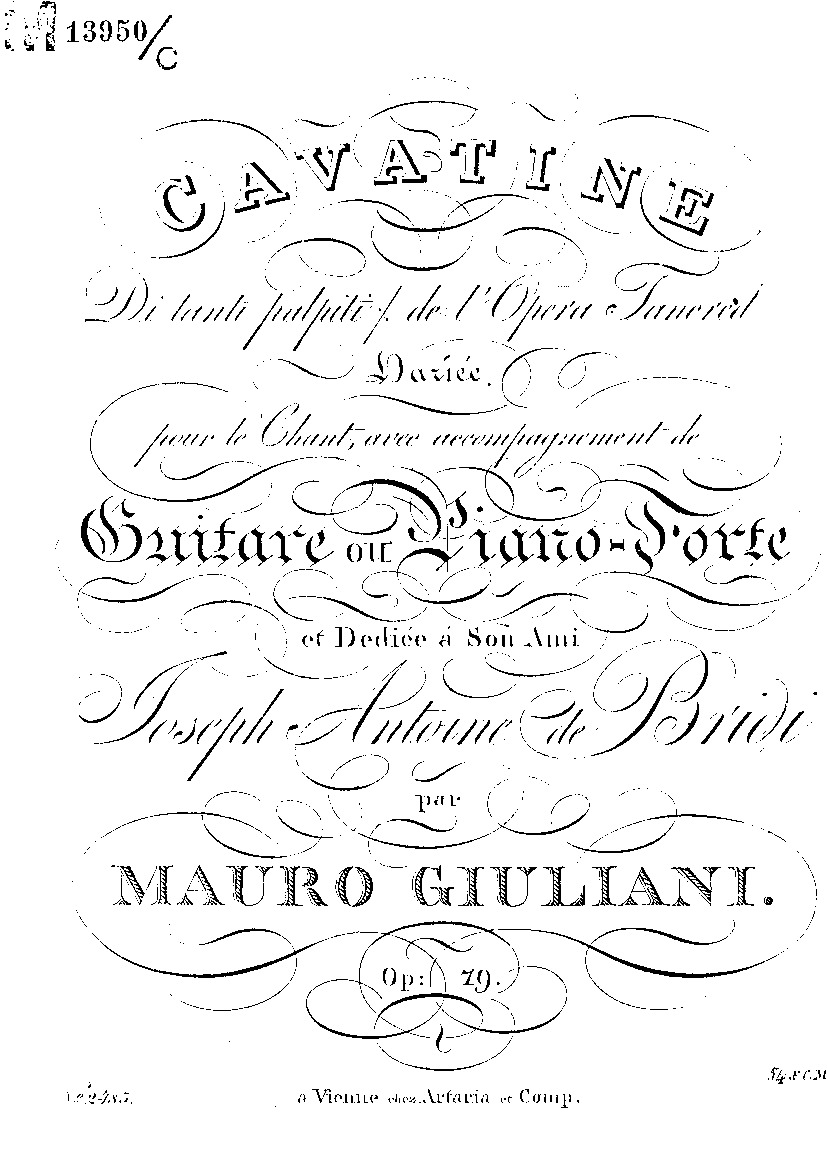 M 13950/C
CAVATINE
Di tanti palpiti /. de l'Opera Tancred
Variée.
pour le Chant, avec accompagnement de
Guitare ou Piano-Forte
et Dediée á Son Ami
Joseph Antoine de Bridi
par
MAURO GIULIANI.
Op: 79.
a Vienne chez Artaria et Comp.